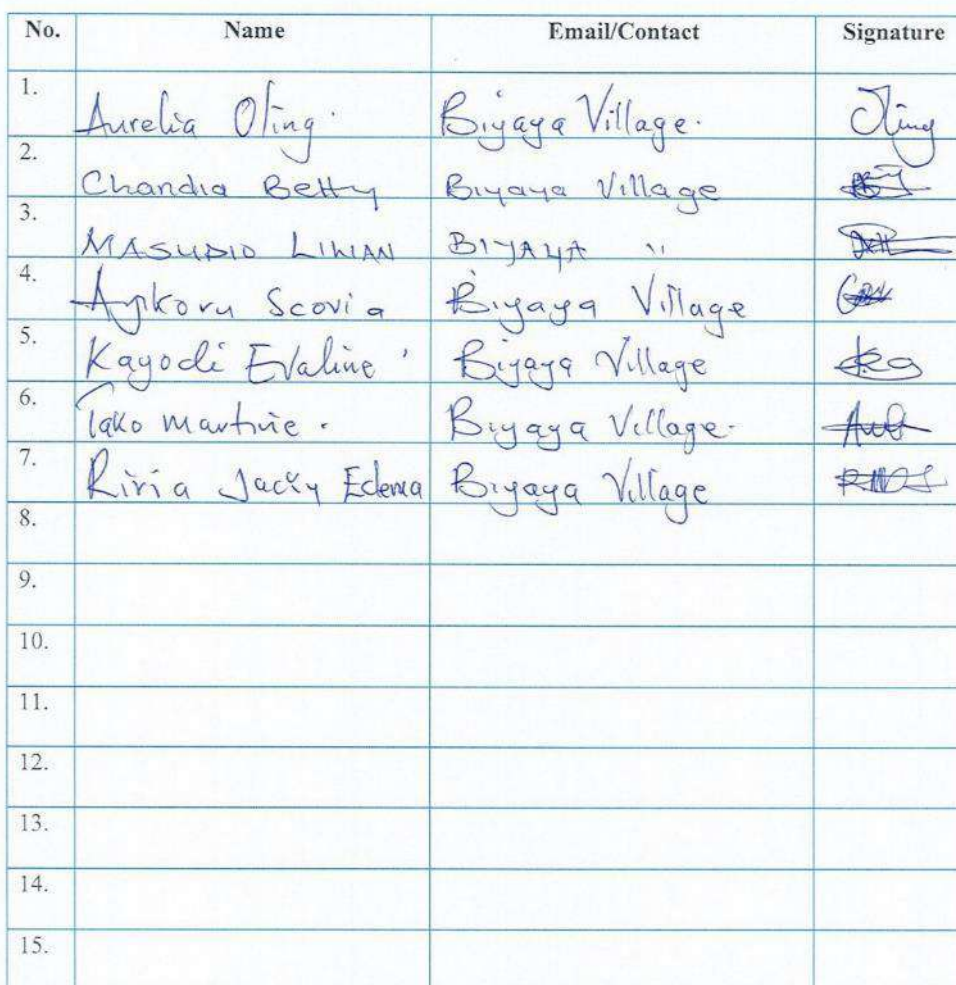 No. Name Email/Contact Signature
1. Aurelia Oling. Biyaya Village. Oling
2. Chandia Betty Biyaya Village
3. MASUDIO LILLIAN BIYAYA "
4. Ayikoru Scovia Biyaya Village
5. Kayodi Evaline Biyaya Village
6. Tako Martine. Biyaya Village.
7. Riria Jacky Edema Biyaya Village
8.
9.
10.
11.
12.
13.
14.
15.